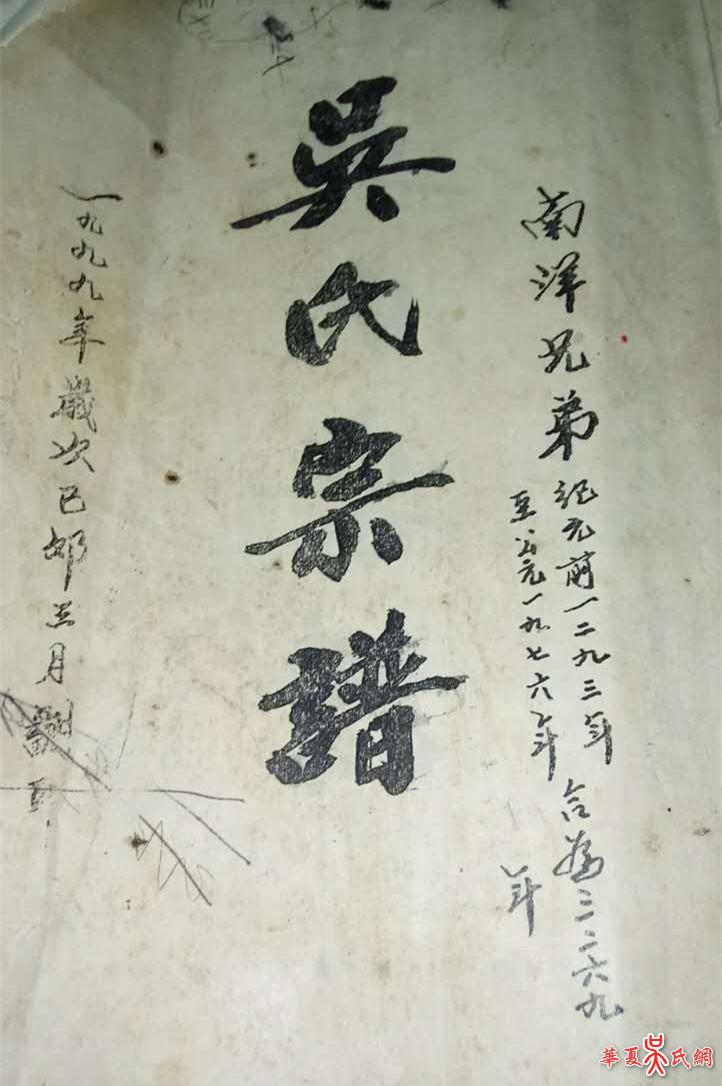 南洋兄弟
紀元前一二九三年
至公元一九七六年
合為三二六九
年
吳氏宗譜
一九九九年歲次己卯三月
華夏吳氏網